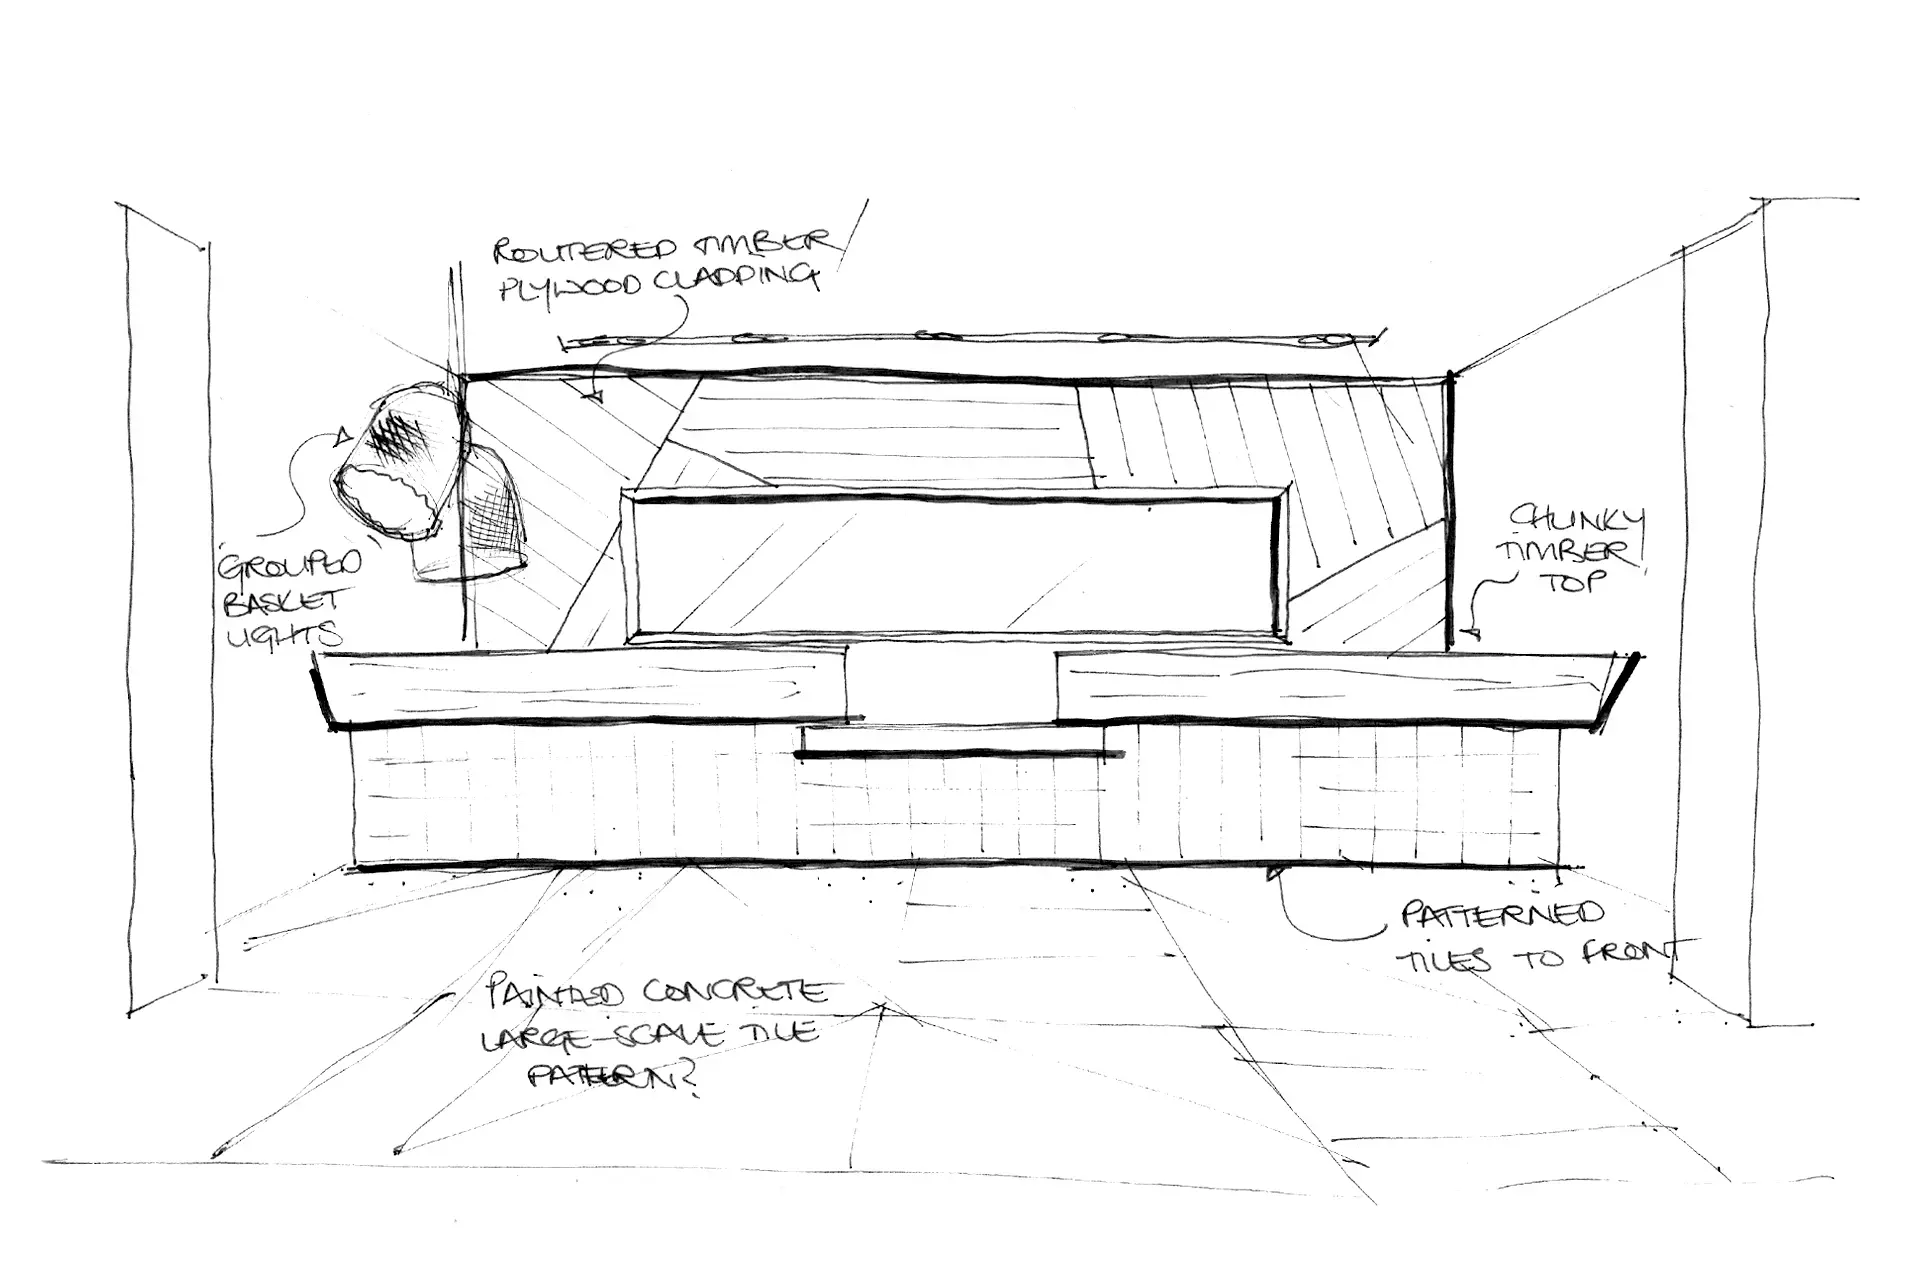 ROUTERED TIMBER
PLYWOOD CLADDING
GROUPED
BASKET
LIGHTS
CHUNKY
TIMBER
TOP
PATTERNED
TILES TO FRONT
PAINTED CONCRETE
LARGE-SCALE TILE
PATTERN?